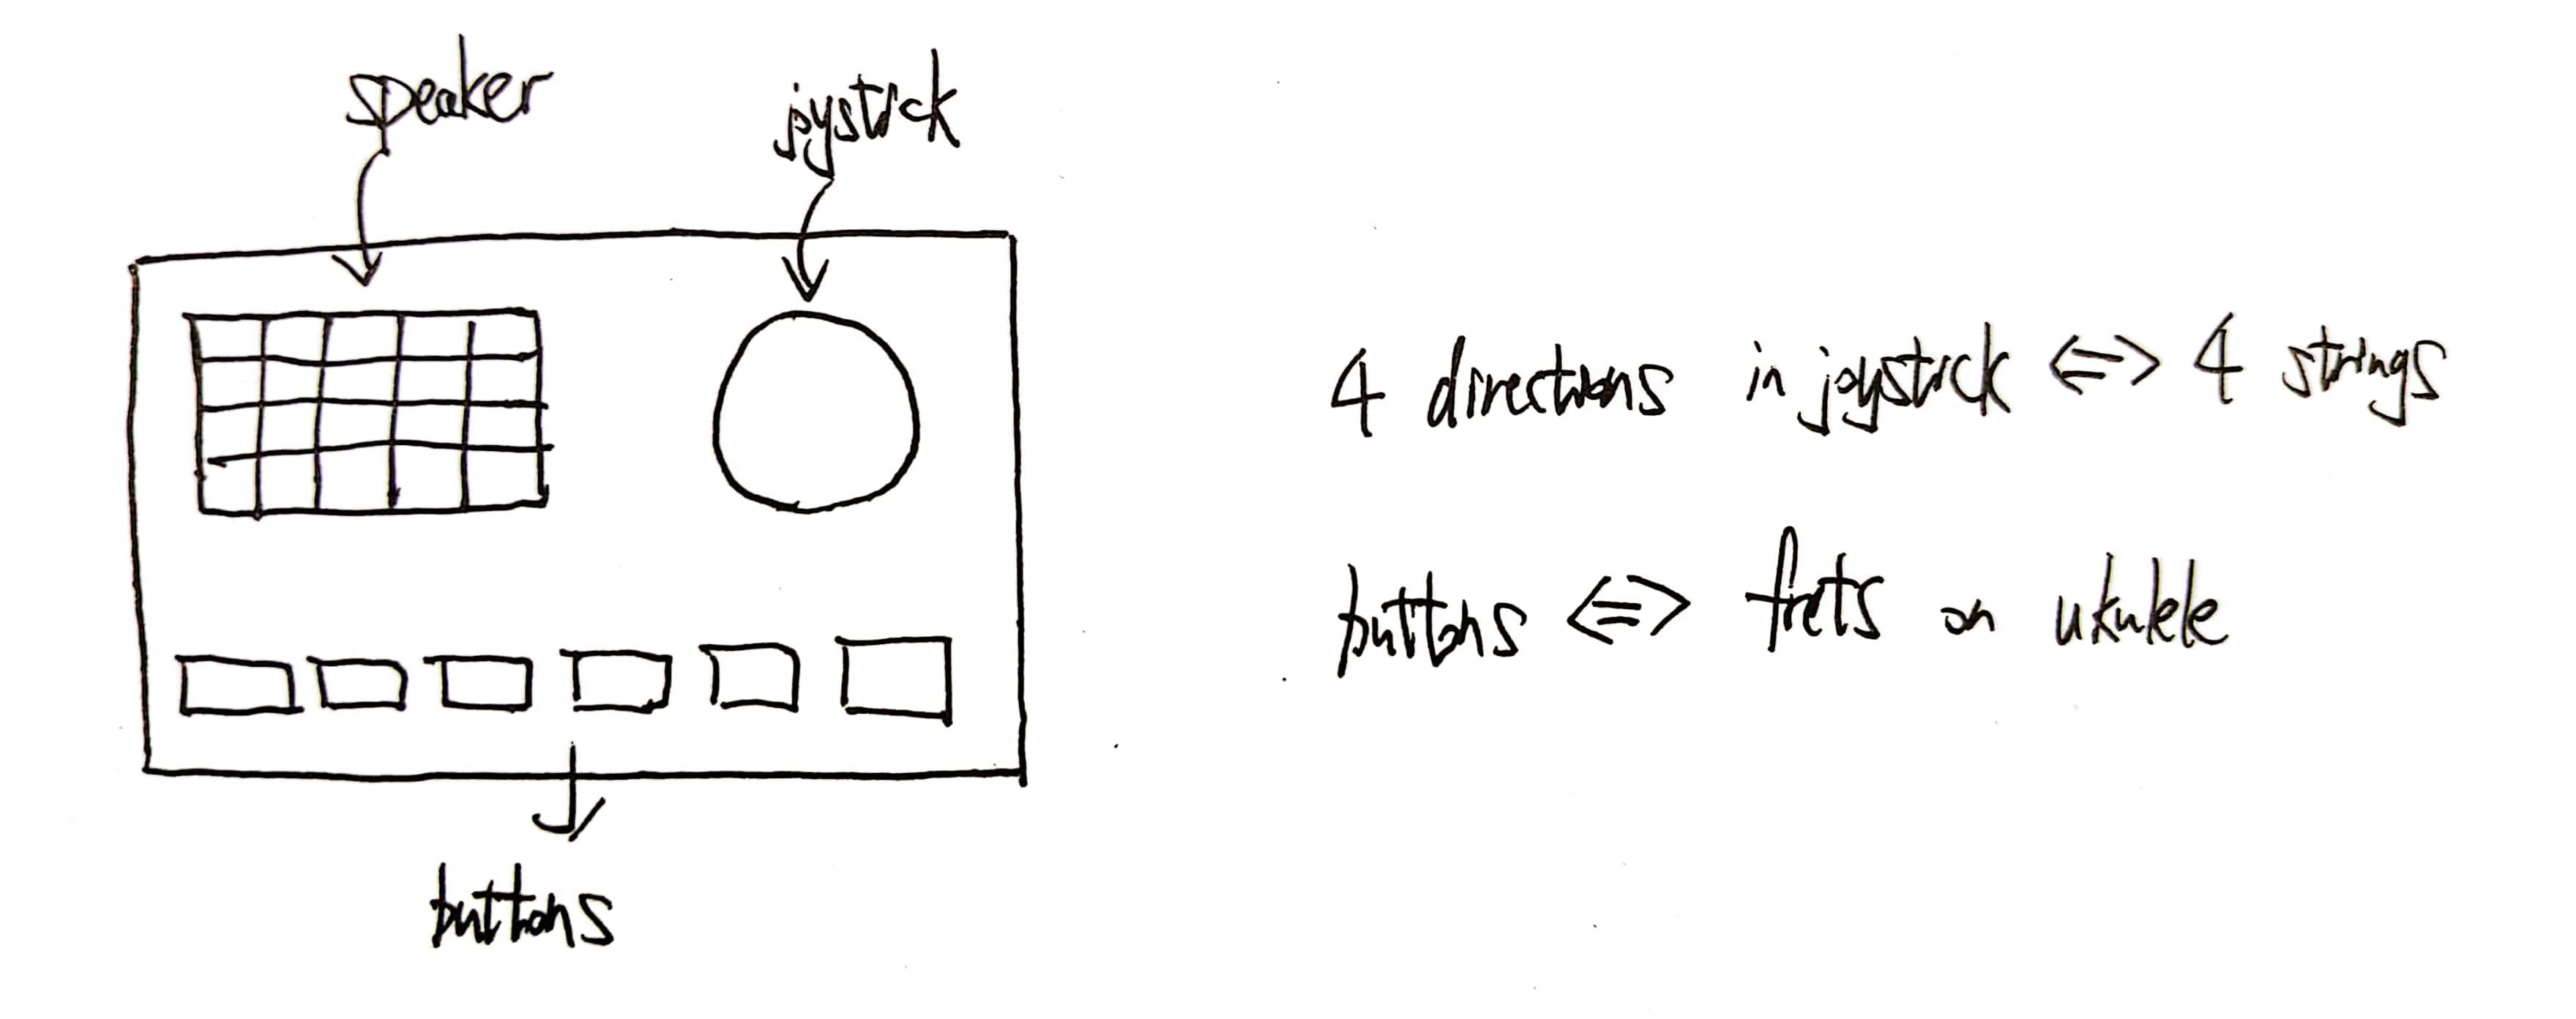 speaker
joystick
4 directions in joystick <=> 4 strings
buttons <=> frets on ukulele
buttons